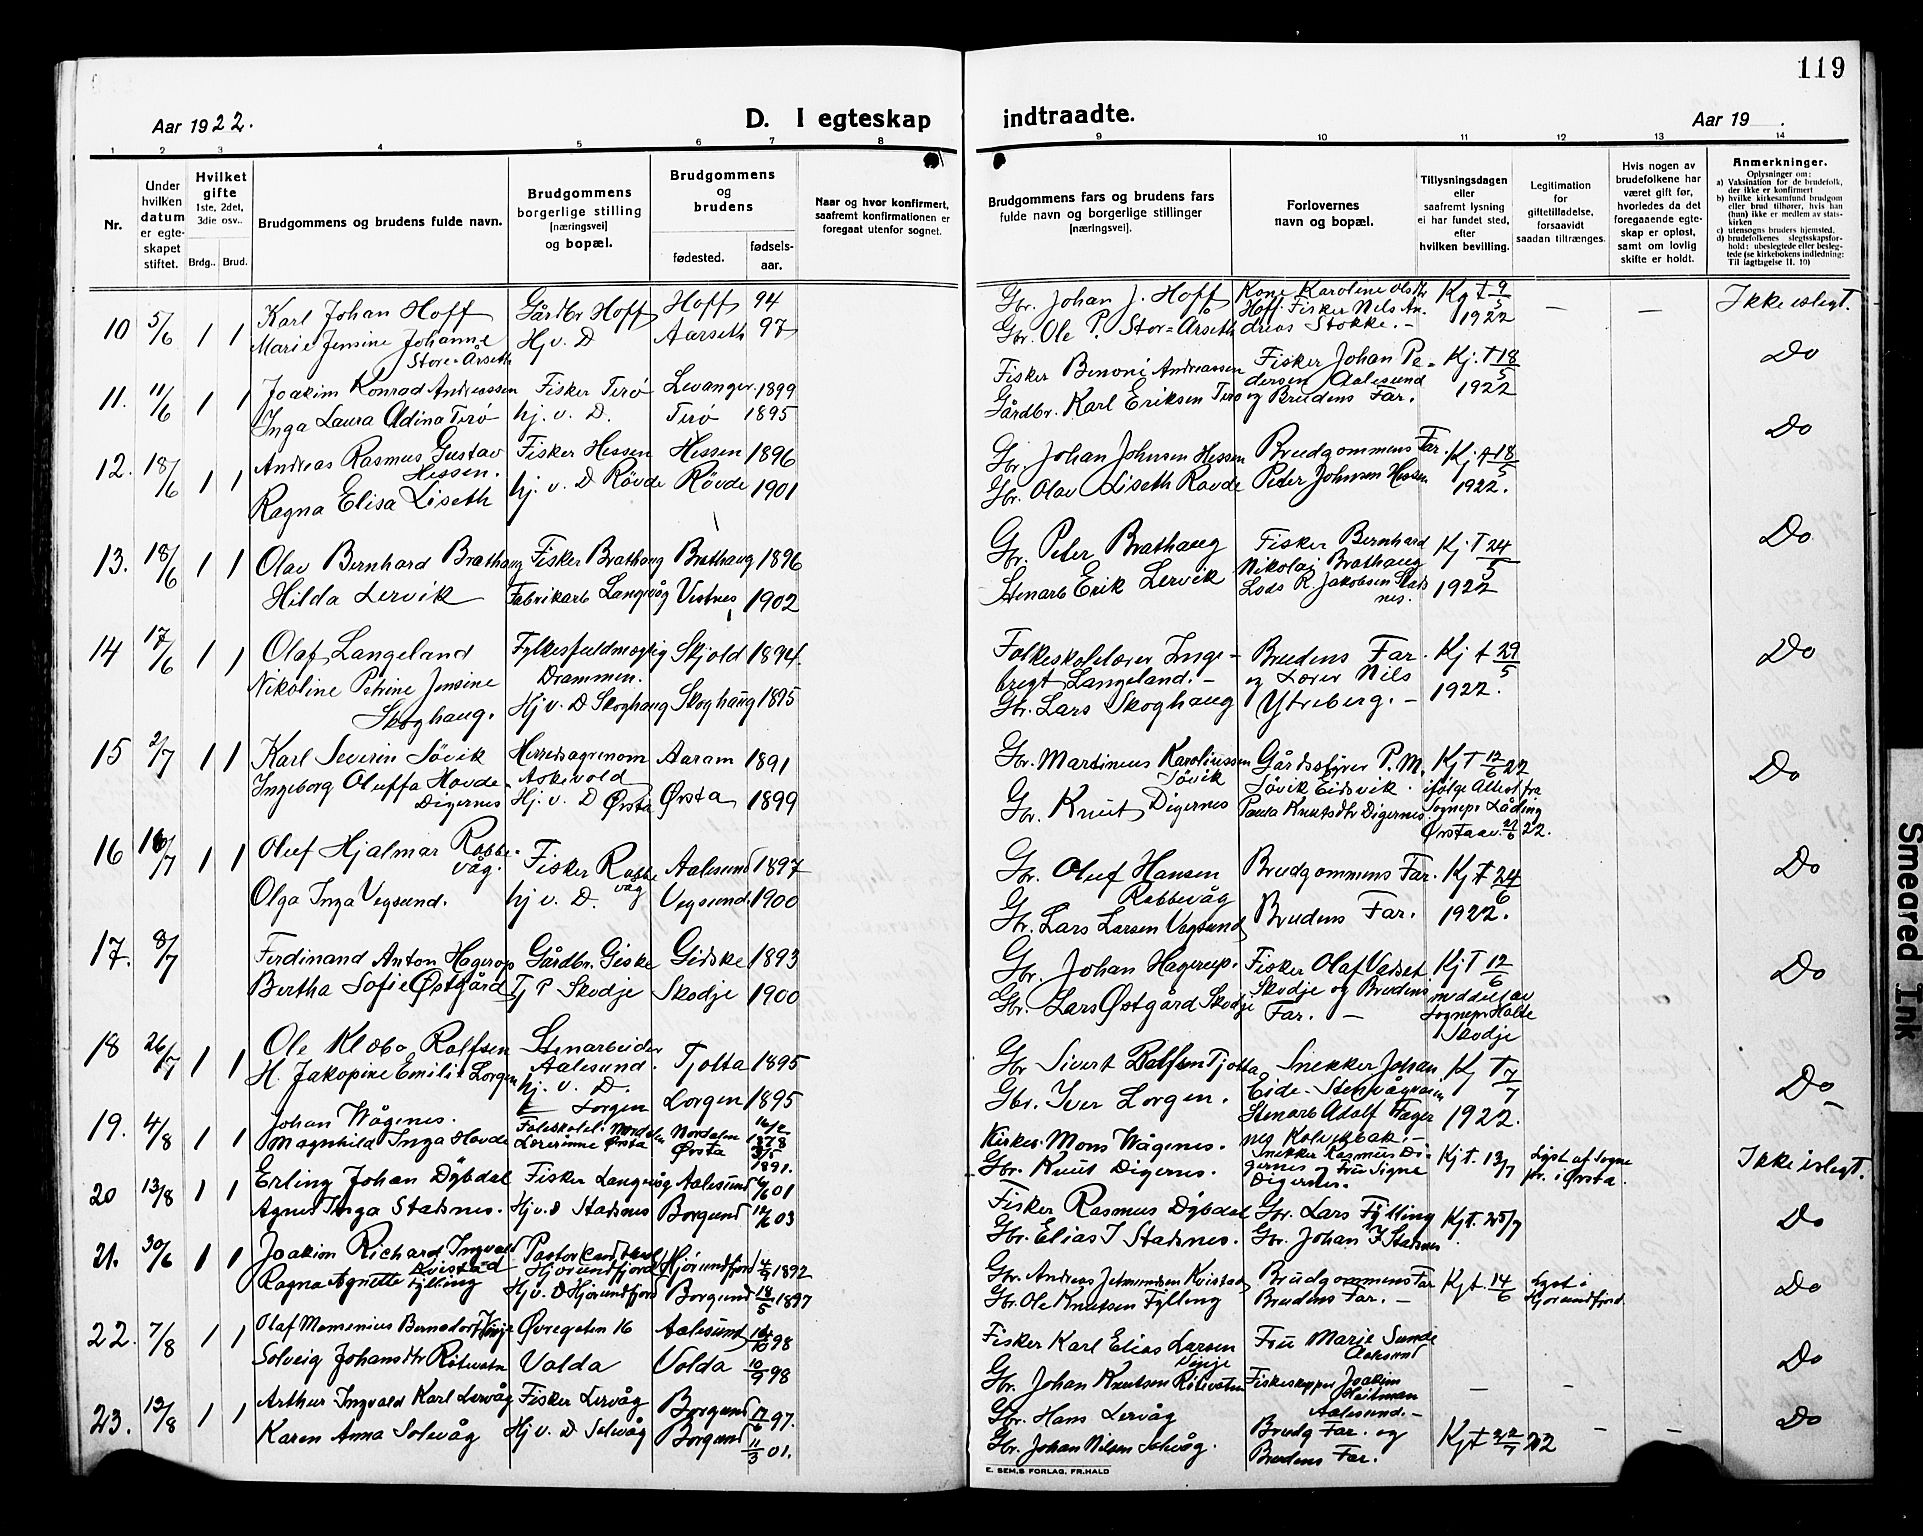 119
Aar 1922.
D. I egteskap indtraadte.
Aar 19 .
1 2 3 4 5 6 7 8 9 10 11 12 13 14
Nr.
Under hvilken datum er egteskapet stiftet.
Hvilket gifte 1ste, 2det, 3die osv..
Brdg.. Brud.
Brudgommens og brudens fulde navn.
Brudgommens borgerlige stilling [næringsvei] og bopæl.
Brudgommens og brudens
fødested.
fødselsaar.
Naar og hvor konfirmert, saafremt konfirmationen er foregaat utenfor sognet.
Brudgommens fars og brudens fars fulde navn og borgerlige stillinger [næringsvei].
Forlovernes navn og bopæl.
Tillysningsdagen eller saafremt lysning ei har fundet sted, efter hvilken bevilling.
Legitimation for giftetilladelse, forsaavidt saadan tiltrænges.
Hvis nogen av brudefolkene har været gift før, hvorledes da det foregaaende egteskap er opløst, samt om lovlig skifte er holdt.
Anmerkninger.
Oplysninger om:
a) Vaksination for de brudefolk, der ikke er konfirmert
b) hvilke kirkesamfund brudgom eller brud tilhører, hvis han (hun) ikke er medlem av statskirken
c) utensogns bruders hjemsted.
d) brudefolkenes slegtsskapsforhold: ubeslegtede eller beslegtede (se kirkebokens indledning: Til iagttagelse II. 10)
10 5/6 1 1 Karl Johan Hoff Gårdbr Hoff Hoff 94 Gbr. Johan J. Hoff Kone Karoline Hoff. Fisker Nils Andreas Stokke. - Kj t 9/5 1922 - - Ikke islegt.
Marie Jensine Johanne Store-Årseth Hj v. D Aarseth 97 Gbr. Ole P. Stor-Årseth
11. 11/6 1 1 Joakim Konrad Andreassen Fisker Terø Levanger 1899 Fisker Benoni Andreassen Fisker Johan Pedersen Aalesund og Brudens Far. Kj. t 18/5 1922 Do
Inga Laura Odina Terø hj. v. D. Terø 1895 Gårdbr. Karl Eriksen Terø
12. 18/6 1 1 Andreas Rasmus Gustav Hessen. Fisker Hessen Hessen 1896 Gbr. Johan Johnsen Hessen Brudgommens Far. Peter Johnsen Hessen Kj. t 18/5 1922. Do
Ragna Elisa Liseth hj. v. D Røvde Røvde 1901 Gbr. Olav Liseth Rovde
13. 18/6 1 1 Olav Bernhard Brathaug Fisker Brathaug Brathaug 1896 Gbr. Peter Brathaug Fisker Bernhard Nikolai Brathaug Lods R. Jakobsen Stadsnes. Kj. T 24/5 1922 Do
Hilda Lervik Fabrikarb Langevåg Vestnes 1902 Stenarb Erik Lervik
14 17/6 1 1 Olaf Langeland Fylkesfuldmægtig Drammen. Skjold 1894. Folkeskolelærer Ingebregt Langeland. - Brudens Far og Lærer Nils Ytreberg. - Kj t 29/5 1922. Do
Nikoline Petrine Jensine Skoghaug. Hj v. D Skoghaug Skoghaug 1895 Gbr. Lars Skoghaug
15 2/7 1 1 Karl Severin Søvik Herredsagronom Askevold Aaram 1891 Gbr. Martinius Karoliussen Søvik Gårdsstyrer P. M. Søvik Eidsvik. Kj T 12/6 22 ifølge Attest fra Sognepr Låding Ørsta av 27/6 22. Do
Ingeborg Oluffa Hovde-Digernes Hj. v. D Ørsta Ørsta 1899 Gbr. Knut Digernes Paula Knutsdtr Digernes.
16 16/7 1 1 Oluf Hjalmar Robbevåg. Fisker Robbevåg Aalesund 1897 Gbr. Oluf Hansen Robbevåg Brudgommens Far. Kj t 24/6 1922. Do
Olga Inga Vegsund. hj v. D. Vegsund. 1900 Gbr. Lars Larsen Vegsund Brudens Far.
17. 8/7 Ferdinand Anton Hagerup Gårdbr. Giske Gidske 1893 Gbr. Johan Hagerup. Fisker Olaf Valset Skodje og Brudens Far. - Kj T 12/6 meddelt av Sognepr Holte Skodje Do
Bertha Sofie Østgård Tj P Skodje Skodje 1900 Gbr. Lars Østgård Skodje
18 26/7 1 1 Ole Klobo Rolfsen Stenarbeider Aalesund. Tjøtta 1895 Gbr Sivert Rolfsen Tjøtta Snekker Johan Eide - Stenvågveien Stenarb Adolf Hagernes Kolvikbak. - Kj T 7/7 1922. Do
H. Jakopine Emilie Lorgen hj. v. D. Lorgen Lorgen 1895 Gbr. Iver Lorgen.
19. 4/8 1 1 Johan Wågenes. Folkeskolel. Nordalen Nordalen 16/2 1878 Kirkes. Mons Wågenes. Snekker Rasmus Digernes og Fru Signe Digernes. Kj t. 13/7 Lyst af Sognepr. i Ørsta. Ikke islegt.
Magnhild Inga Hovde Lærerinne Ørsta Ørsta 3/5 1891. Gbr. Knut Digernes.
20 13/8 1 1 Erling Johan Dybdal Fisker Langevåg Aalesund 6/6 01 Fisker Rasmus Dybdal Gbr. Lars Fylling Kj t. 25/7 Do
Agnes Inga Stadsnes. Hj v. d Stadsnes Borgund 12/6 03 Gbr. Elias I Stadsnes. Gbr. Johan I Stadsnes
21. 30/6 1 1 Joakim Richard Ingvald Kvistad Hjørundfjord Hjørundfjord 4/9 1892 Gbr. Andreas Jetmundsen Kvistad Brudgommens Far Kj t 14/6 Lyst i Hjørundfjord. Do
Ragna Agnette Fylling Hj v. D Hjørundfjord Borgund 18/5 1897 Gbr. Ole Knutsen Fylling Brudens Far. -
22. 7/8 1 1 Olaf Øvregaten 16 Aalesund 98 Fisker Karl Elias Larsen Fru Marie Sunde Aalesund Do
Solveig Johansdtr Røtevatn Volda Volda 10/9 98 Gbr. Johan Knutsen Røtevatn Fiskeskipper Joakim Aalesund. - - -
23. 12/8 1 1 Arthur Ingvald Karl Lervåg Fisker Lervåg Borgund 17/6 97. Gbr. Hans Lervåg Brudg Far. og Brudens Far. Kj t 22/7 22 - - Do
Karen Anna Solevåg Hj v. D Solevåg Borgund 11/3 01. Gbr. Johan Nilsen Solevåg.
E. SEM,S FORLAG, FR.HALD
Smeared Ink